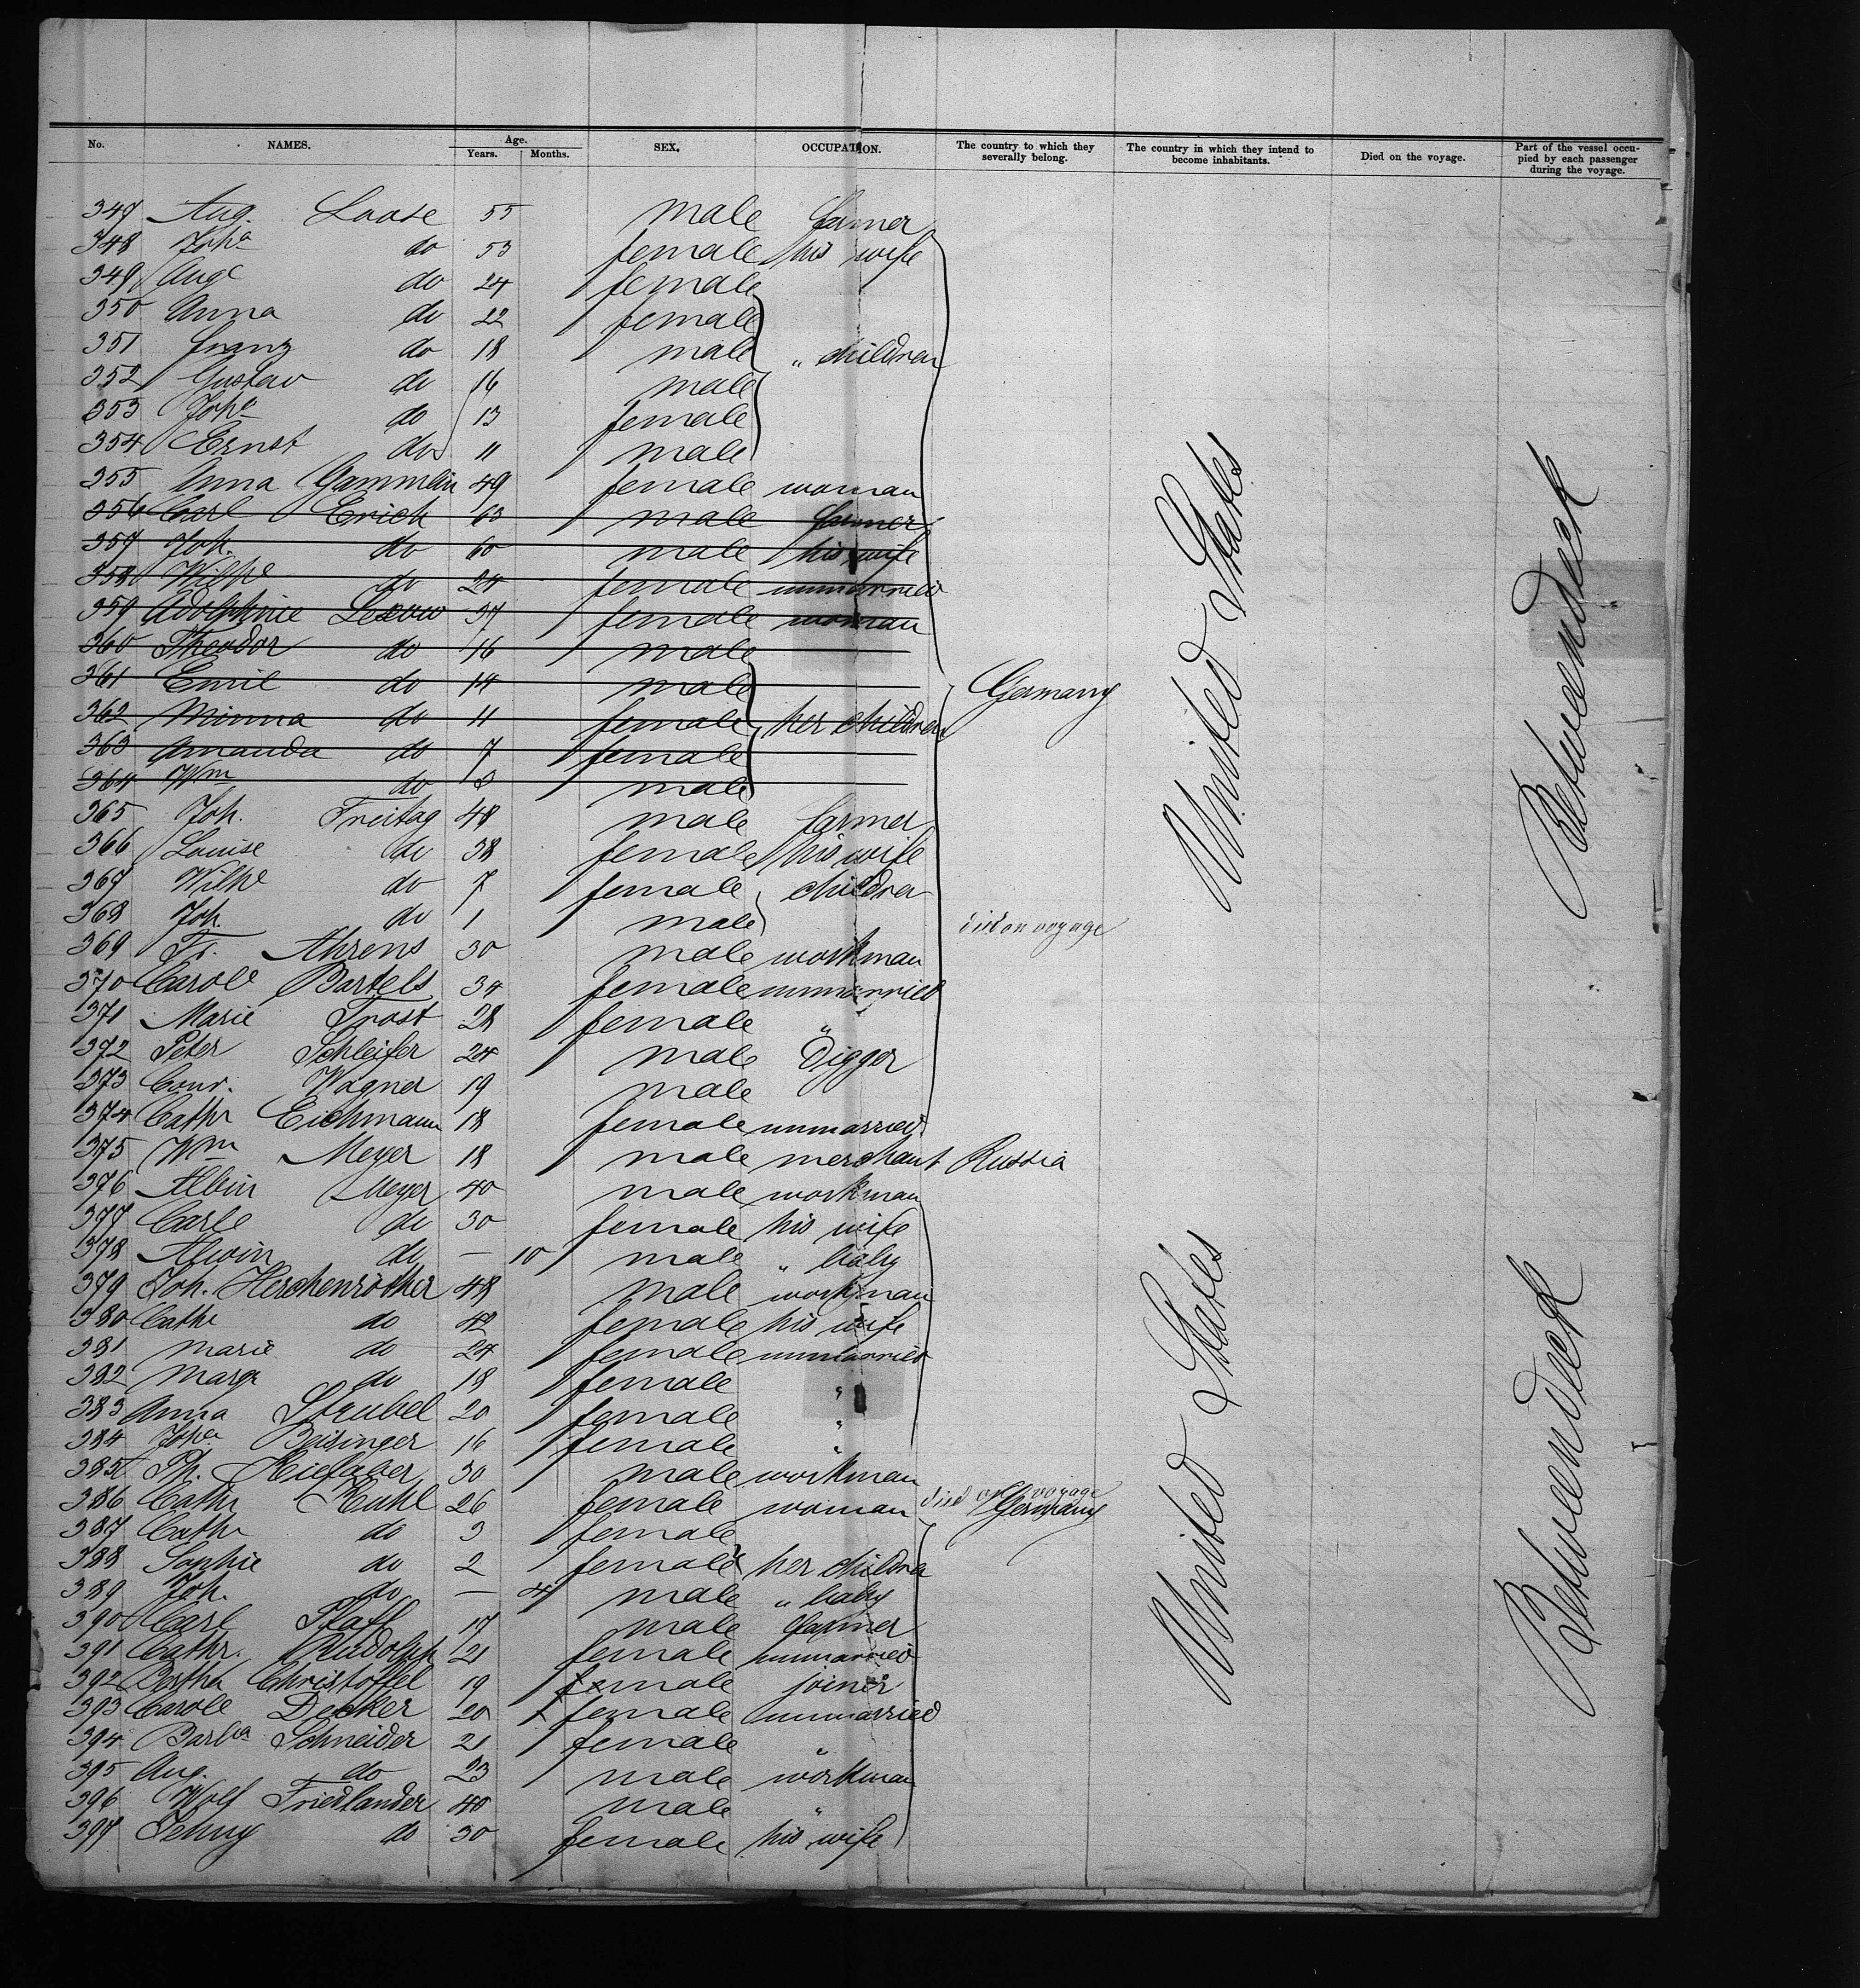 No. NAMES. Age. Years. Months. SEX. OCCUPATION. The country to which they severally belong. The country in which they intend to become inhabitants. Died on the voyage. Part of the vessel occupied by each passenger during the voyage.
347 Aug. Loose 55 male farmer
348 Joha do 53 female his wife
349 Auge do 24 female
350 Anna do 22 female
351 Franz do 18 male " children
352 Gustav do 16 male
353 Joha do 13 female
354 Ernst do 11 male
355 Anna Gammlin 49 female woman
356 Carl Erich 63 male farmer
357 Joh. do 60 male his wife
358 Wilhe do 24 female unmarried
359 Adolphine Lexow 37 female woman
360 Theodor do 16 male
361 Emil do 14 male Germany
362 Minna do 11 female her children
363 Amanda do 7 female
364 Wm do 3 male
365 Joh. Freitag 48 male farmer
366 Louise do 38 female his wife
367 Wilhe do 7 female children
368 Joh. do 1 male died on voyage
369 Fr. Ahrens 30 male workman
370 Carole Bartels 34 female unmarried
371 Marie Frost 28 female "
372 Peter Schleifer 24 male Digger
373 Conr. Wagner 19 male
374 Cathr Eichmann 18 female unmarried
375 Wm Meyer 18 male merchant Russia
376 Albin Meyer 40 male workman
377 Carle do 30 female his wife
378 Alwin do — 10 male " baby
379 Joh. Herchenröther 48 male workman
380 Cathe do 42 female his wife
381 Marie do 24 female unmarried
382 Marge do 18 female "
383 Anna Strubel 20 female "
384 Joha Beisinger 16 female "
385 Ph. Kiefaber 30 male workman
386 Cathr Kuhl 26 female woman died on voyage Germany
387 Cathe do 3 female
388 Sophie do 2 female her children
389 Joh. do — 4 male " baby
390 Carl Pfaff 17 male farmer
391 Cathr. Rudolph 21 female unmarried
392 Bertha Christoffel 19 female joiner
393 Carole Decker 20 female unmarried
394 Barba Schneider 21 female "
395 Aug. do 23 male workman
396 Wolf Friedlander 40 male "
397 Jenny do 30 female his wife
United States
Betweendeck
United States
Betweendeck